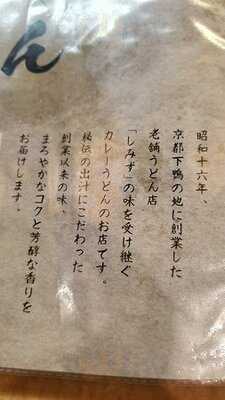 ん
昭和十六年、
京都下鴨の地に創業した
老舗うどん店
「しみず」の味を受け継ぐ
カレーうどんのお店です。
秘伝の出汁にこだわった
創業以来の味、
まろやかなコクと芳醇な香りを
お届けします。